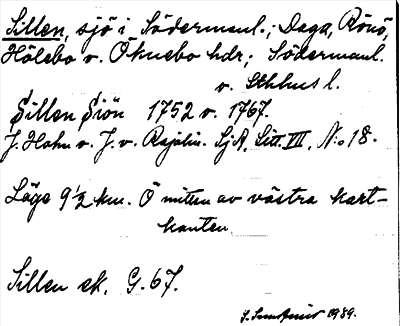 Sillen, sjö i Södermanl.; Daga, Rönö,
Hölebo o. Öknebo hdr; Södermanl.
o. Sthlms l.
Sillen Siön 1752 o. 1767.
J. Hahn o. J. v. Rajalin. SjA, Litt. VII, N:o 18.
Läge 9 1/2 km. Ö mitten av västra kart-
kanten
Sillen ek. G. 67.
1989.